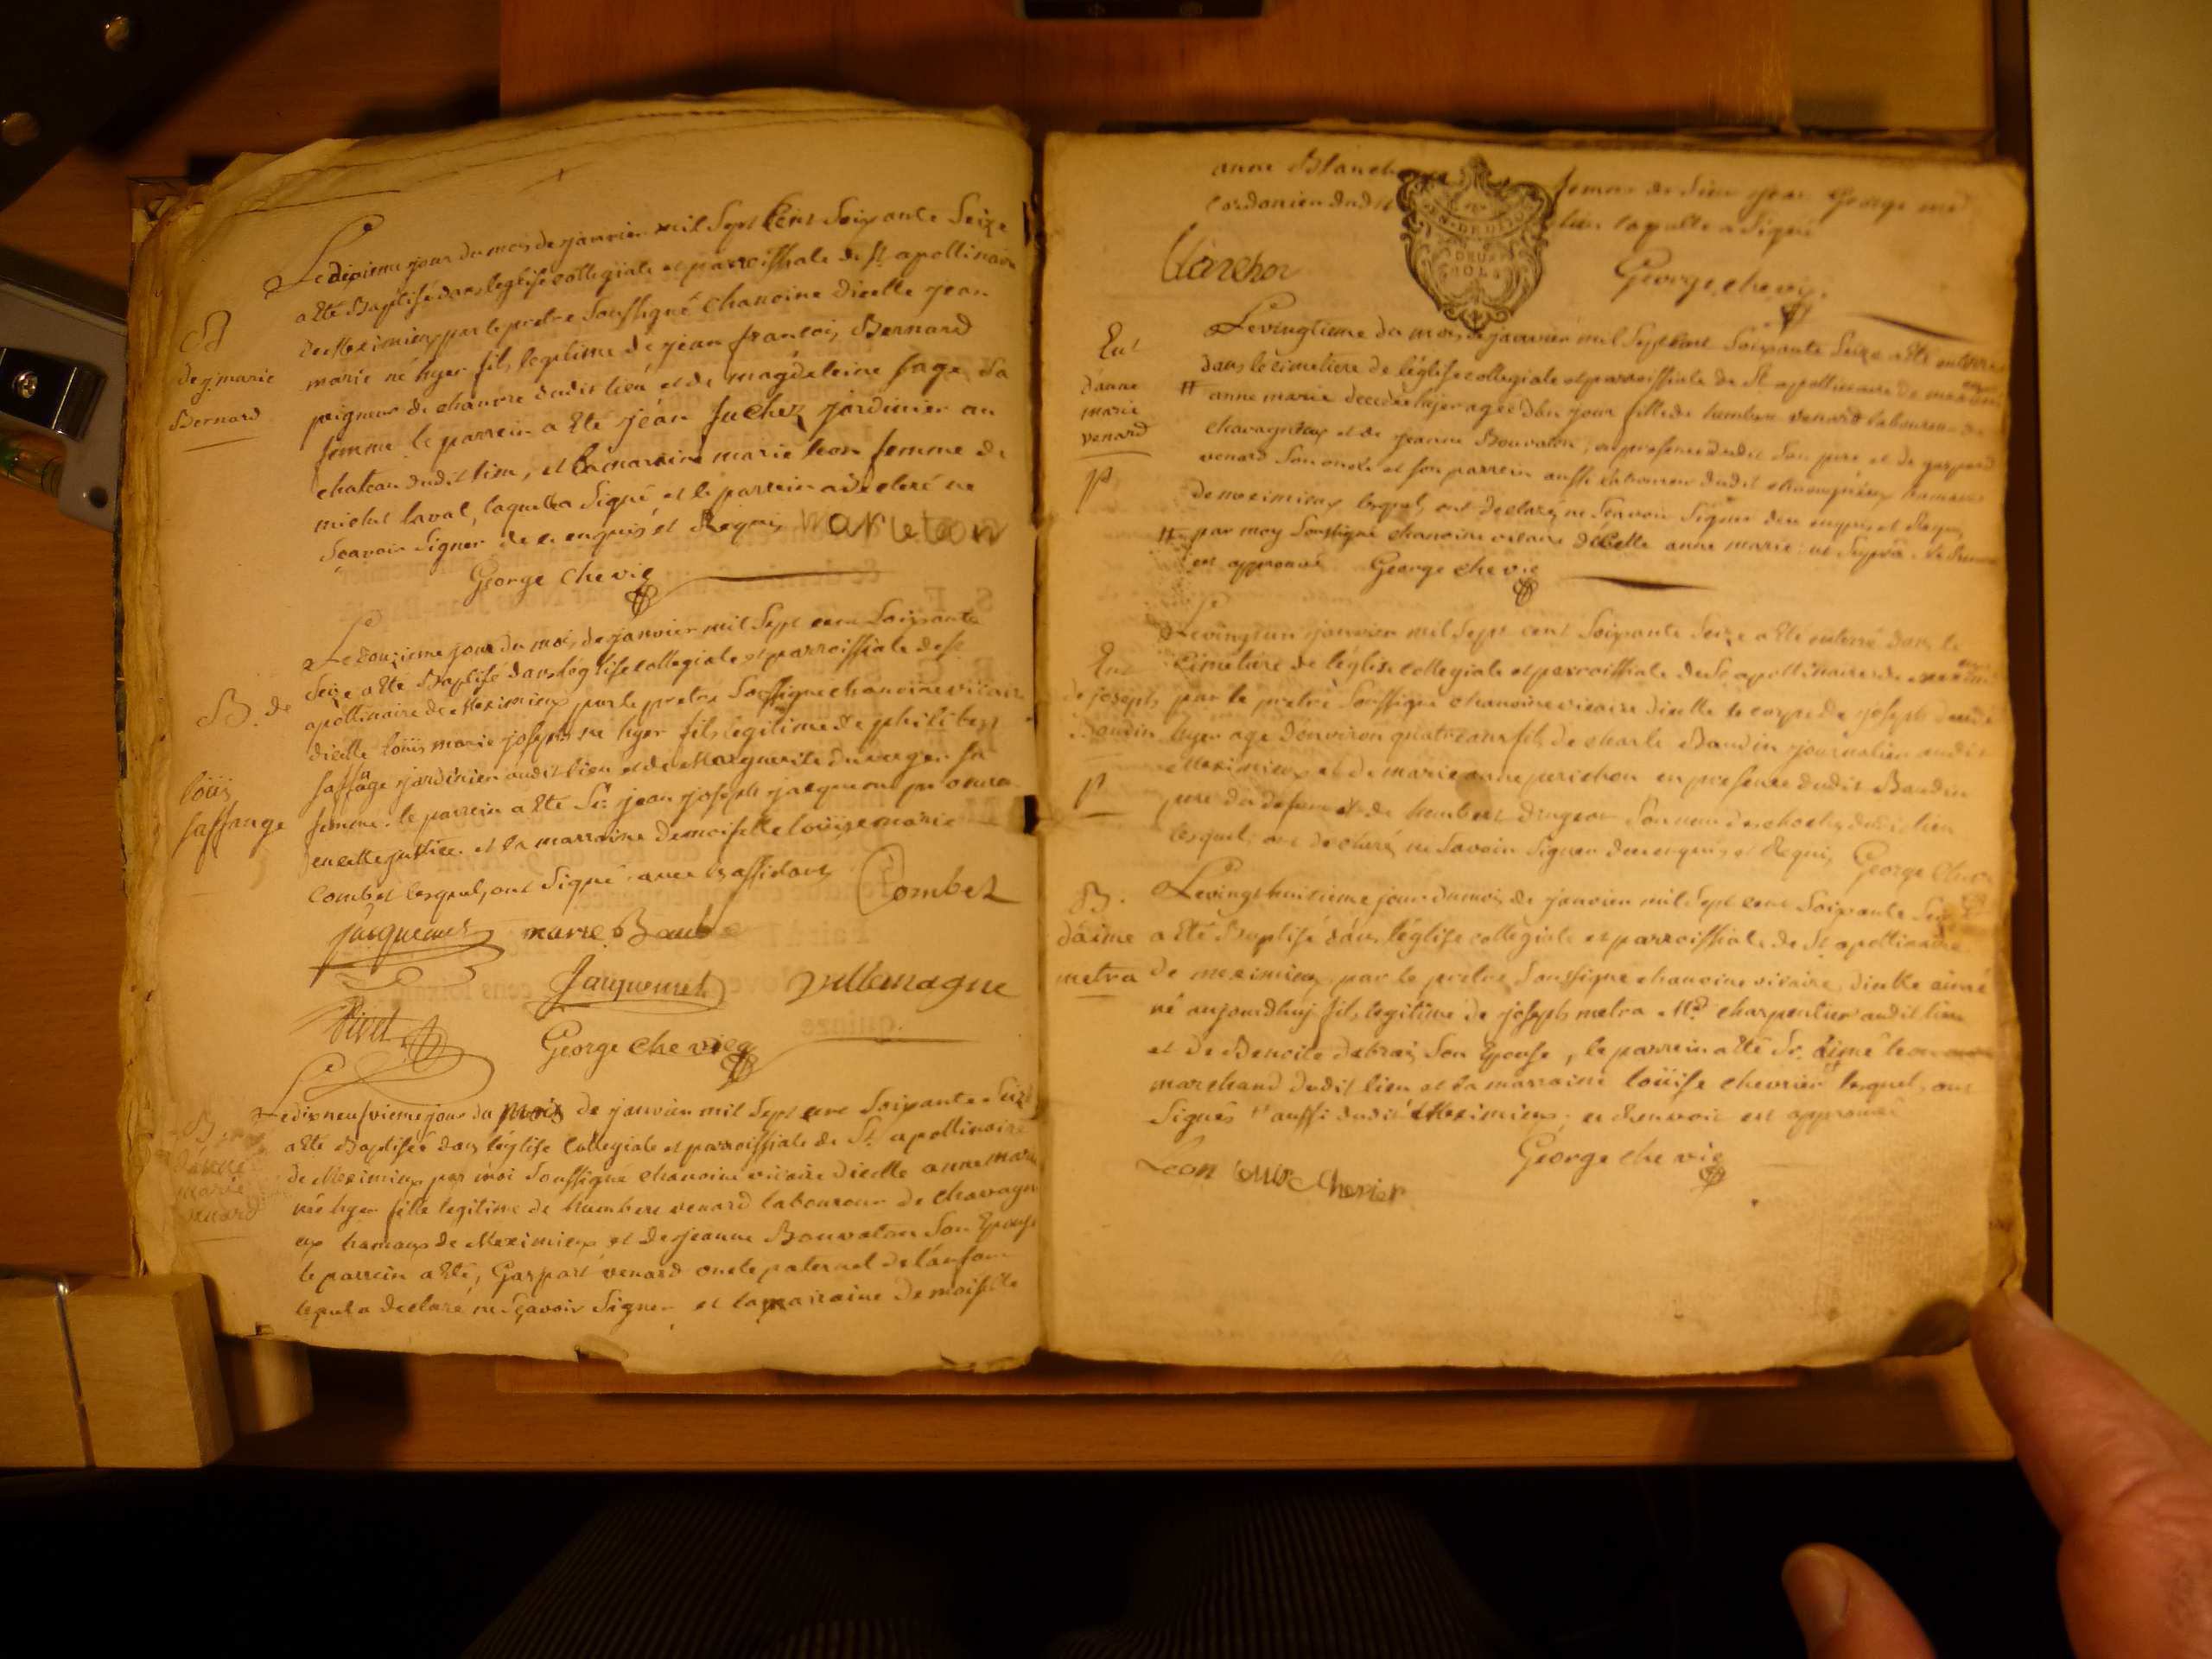 Le dixieme jour du mois de janvier mil Sept Cent Soixante Seize
a Eté Baptisé dans leglise collegiale et parroissiale de St apollinaire
de Meximieux par le pretre Soussigné chanoine dicelle jean
B
de j: marie
Bernard
marie né hyer fils legitime de jean francois Bernard
peigneur de chanvre dudit lieu et de magdeleine sage Sa
femme. le parrein a Eté jean juchez jardinier au
chateau dudit lieu, et la marraine marie leon femme de
michel laval, laquella Signé et le parrein a declaré ne
Sçavoir Signer de ce enquis et Requis marie leon
George chevie
Le douzieme jour du mois de janvier mil Sept cent Soixante
Seize a Eté Baptisé dans légliße collegiale et parroissiale de St
apollinaire de Meximieux par le pretre Soussigné chanoine vicaire
B. de
loüis
saffange
dicelle loüis marie joseph né hyer fils legitime de philibert
saffage jardinier audit lieu et de Marguerite du verger Sa
femme. le parrein a Eté Sr. jean joseph jacquemet procureur
en cette justice. et la marraine demoiselle loüise marie
Combet lesquels ont Signé avec les assistants Combet
jacquemet marie Baub
Jacquemet Villemagne
Rivet George chevie
Le dix neufvieme jour du mois de janvier mil Sept cent Soixante Seize
a Eté Baptisée dans léglise Collegiale et parroissiale de St. apollinaire
B
danne
marie
venard
de Meximieux par moi Soussigné chanoine vicaire dicelle anne marie
née hyer fille legitime de humbert venard laboureur de Chavagn
eux hameaux de Meximieux et de jeanne Bouvaton Son Epouse
le parrein a Eté, Gaspart venard oncle paternel de lanfant
lequel a declaré ne Sçavoir Signer et la marraine demoiselle
anne Blanchon femme de Sieur jean George
cordonier dudit lieu laquelle a Signé
Blanchon George chevie
Le vingtieme du mois de janvier mil Sept cent Soixante Seize a Eté enterrée
Ent
d'anne
marie
venard
P
dans le cimetiere de léglise collegiale et parroissiale de St apollinaire de meximieux
# anne marie decedée hyer agée dun jour fille de humbert venard laboureur de
chavagneux et de jeanne Bouvaton, en presence dudit Son pere et de gaspard
venard Son oncle et son parrein aussi laboureur dudit chavagneux hameau
de meximieux lesquels ont declaré ne Sçavoir Signer de ce enquis et Requis
# par moy Soussigné chanoine vicaire dicelle anne marie
est approuvé George chevie
Le vingt un janvier mil Sept cent Soixante Seize a Eté enterré dans le
Ent
de joseph
Baudin
P
cimetiere de léglise collegiale et parroissiale de St apollinaire de meximieux
par le pretre Soussigné chanoine vicaire dicelle le corps de joseph decedé
hyer agé d'environ quatre ans fils de charle Baudin journalier audit
Meximieux et de marie anne perichon en presence dudit Baudin
pere du defunt et de humbert drugeon dudit lieu
lesquels ont declaré ne Savoir Signer de ce enquis et Requis George chevie
Le vingt huitieme jour du mois de janvier mil Sept cent Soixante Seize
B.
d'aimé
metra
a Eté Baptisé dans léglise collegiale et parroissiale de St apollinaire
de meximieux par le pretre Soussigné chanoine vicaire dicelle aimé
né aujourdhuy fils legitime de joseph metra Me. charpentier audit lieu
et de Benoite debrai Son Epouse, le parrein a Eté Sr. aimé leon
marchand dudit lieu et la marraine loüise chevrier lesquels ont
Signés # aussi dudit Meximieux. ce Renvoi est approuvé
George chevie
Leon Chevrier